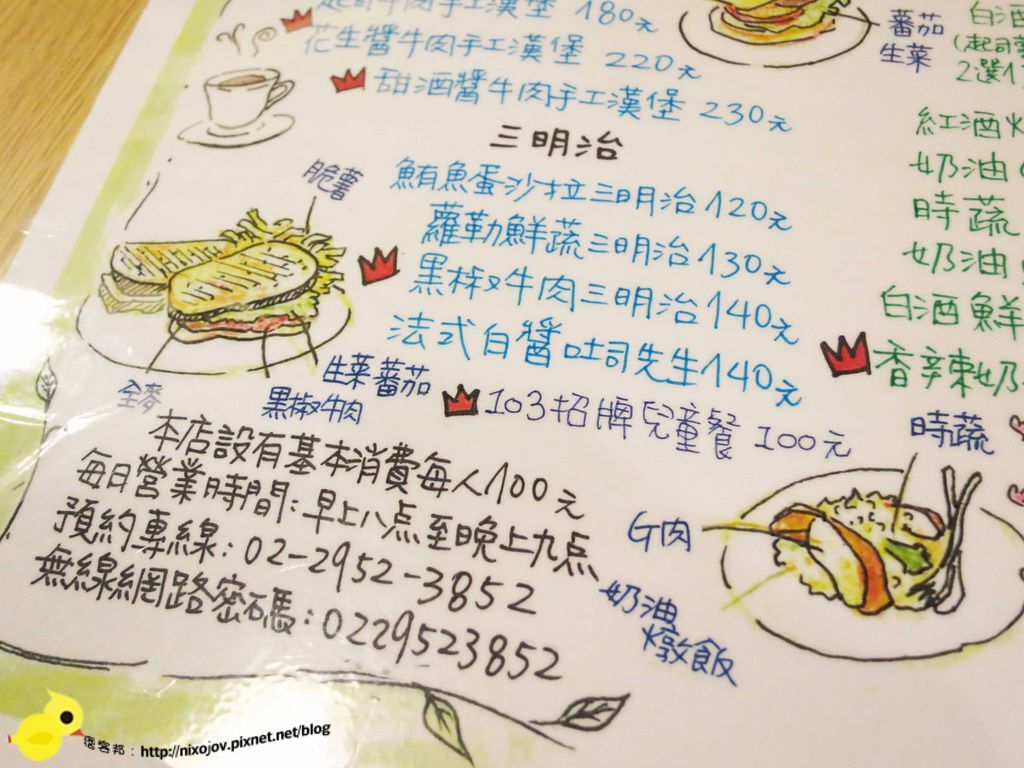 起司牛肉手工漢堡 180元
花生醬牛肉手工漢堡 220元
甜酒醬牛肉手工漢堡 230元
三明治
脆薯
鮪魚蛋沙拉三明治120元
蘿勒鮮蔬三明治130元
黑椒牛肉三明治140元
法式白醬吐司先生140元
全麥
黑椒牛肉
生菜蕃茄
103招牌兒童餐 100元
本店設有基本消費每人100元
每日營業時間:早上八点至晚上九点
預約專線:02-2952-3852
無線網路密碼:0229523852
蕃茄
生菜
白酒
(起司
2選1
紅酒
奶油
時蔬
奶油
白酒鮮
香辣奶
時蔬
G肉
奶油
燉飯
痞客邦:http://nixojov.pixnet.net/blog